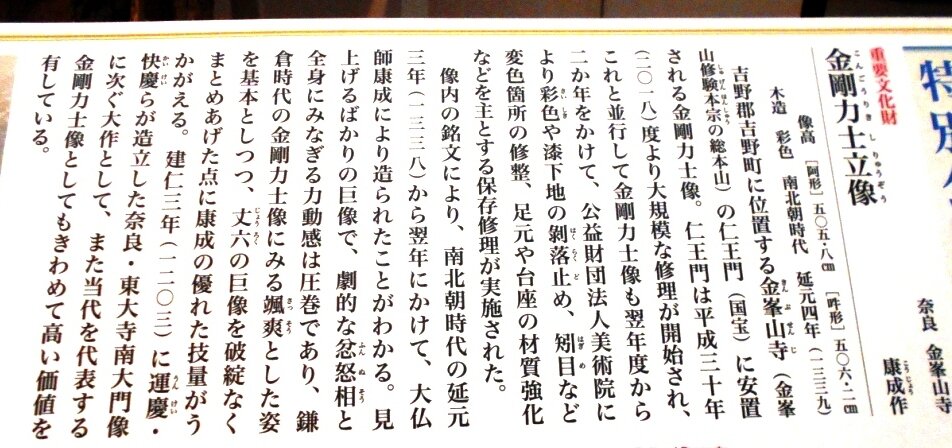 特別公
重要文化財
金剛力士立像
こんごうりきしりゅうぞう
奈良 金峯山寺
康成作
こうじょう
像高 [阿形] 五〇五・八㎝ [吽形] 五〇六・二㎝
木造 彩色 南北朝時代 延元四年(一三三九)
吉野郡吉野町に位置する金峯山寺(金峯
きんぶせんじ
山修験本宗の総本山)の仁王門(国宝)に安置
しゅげんほんしゅう
される金剛力士像。仁王門は平成三十年
(二〇一八)度より大規模な修理が開始され、
これと並行して金剛力士像も翌年度から
二か年をかけて、公益財団法人美術院に
より彩色や漆下地の剝落止め、矧目など
さいしき
はくらくど
はぎめ
変色箇所の修整、足元や台座の材質強化
などを主とする保存修理が実施された。
像内の銘文により、南北朝時代の延元
三年(一三三八)から翌年にかけて、大仏
師康成により造られたことがわかる。見
上げるばかりの巨像で、劇的な忿怒相と
ふんぬそう
全身にみなぎる力動感は圧巻であり、鎌
倉時代の金剛力士像にみる颯爽とした姿
さっそう
を基本としつつ、丈六の巨像を破綻なく
じょうろく
まとめあげた点に康成の優れた技量がう
かがえる。建仁三年(一二〇三)に運慶・
うんけい
快慶らが造立した奈良・東大寺南大門像
かいけい
に次ぐ大作として、また当代を代表する
金剛力士像としてもきわめて高い価値を
有している。